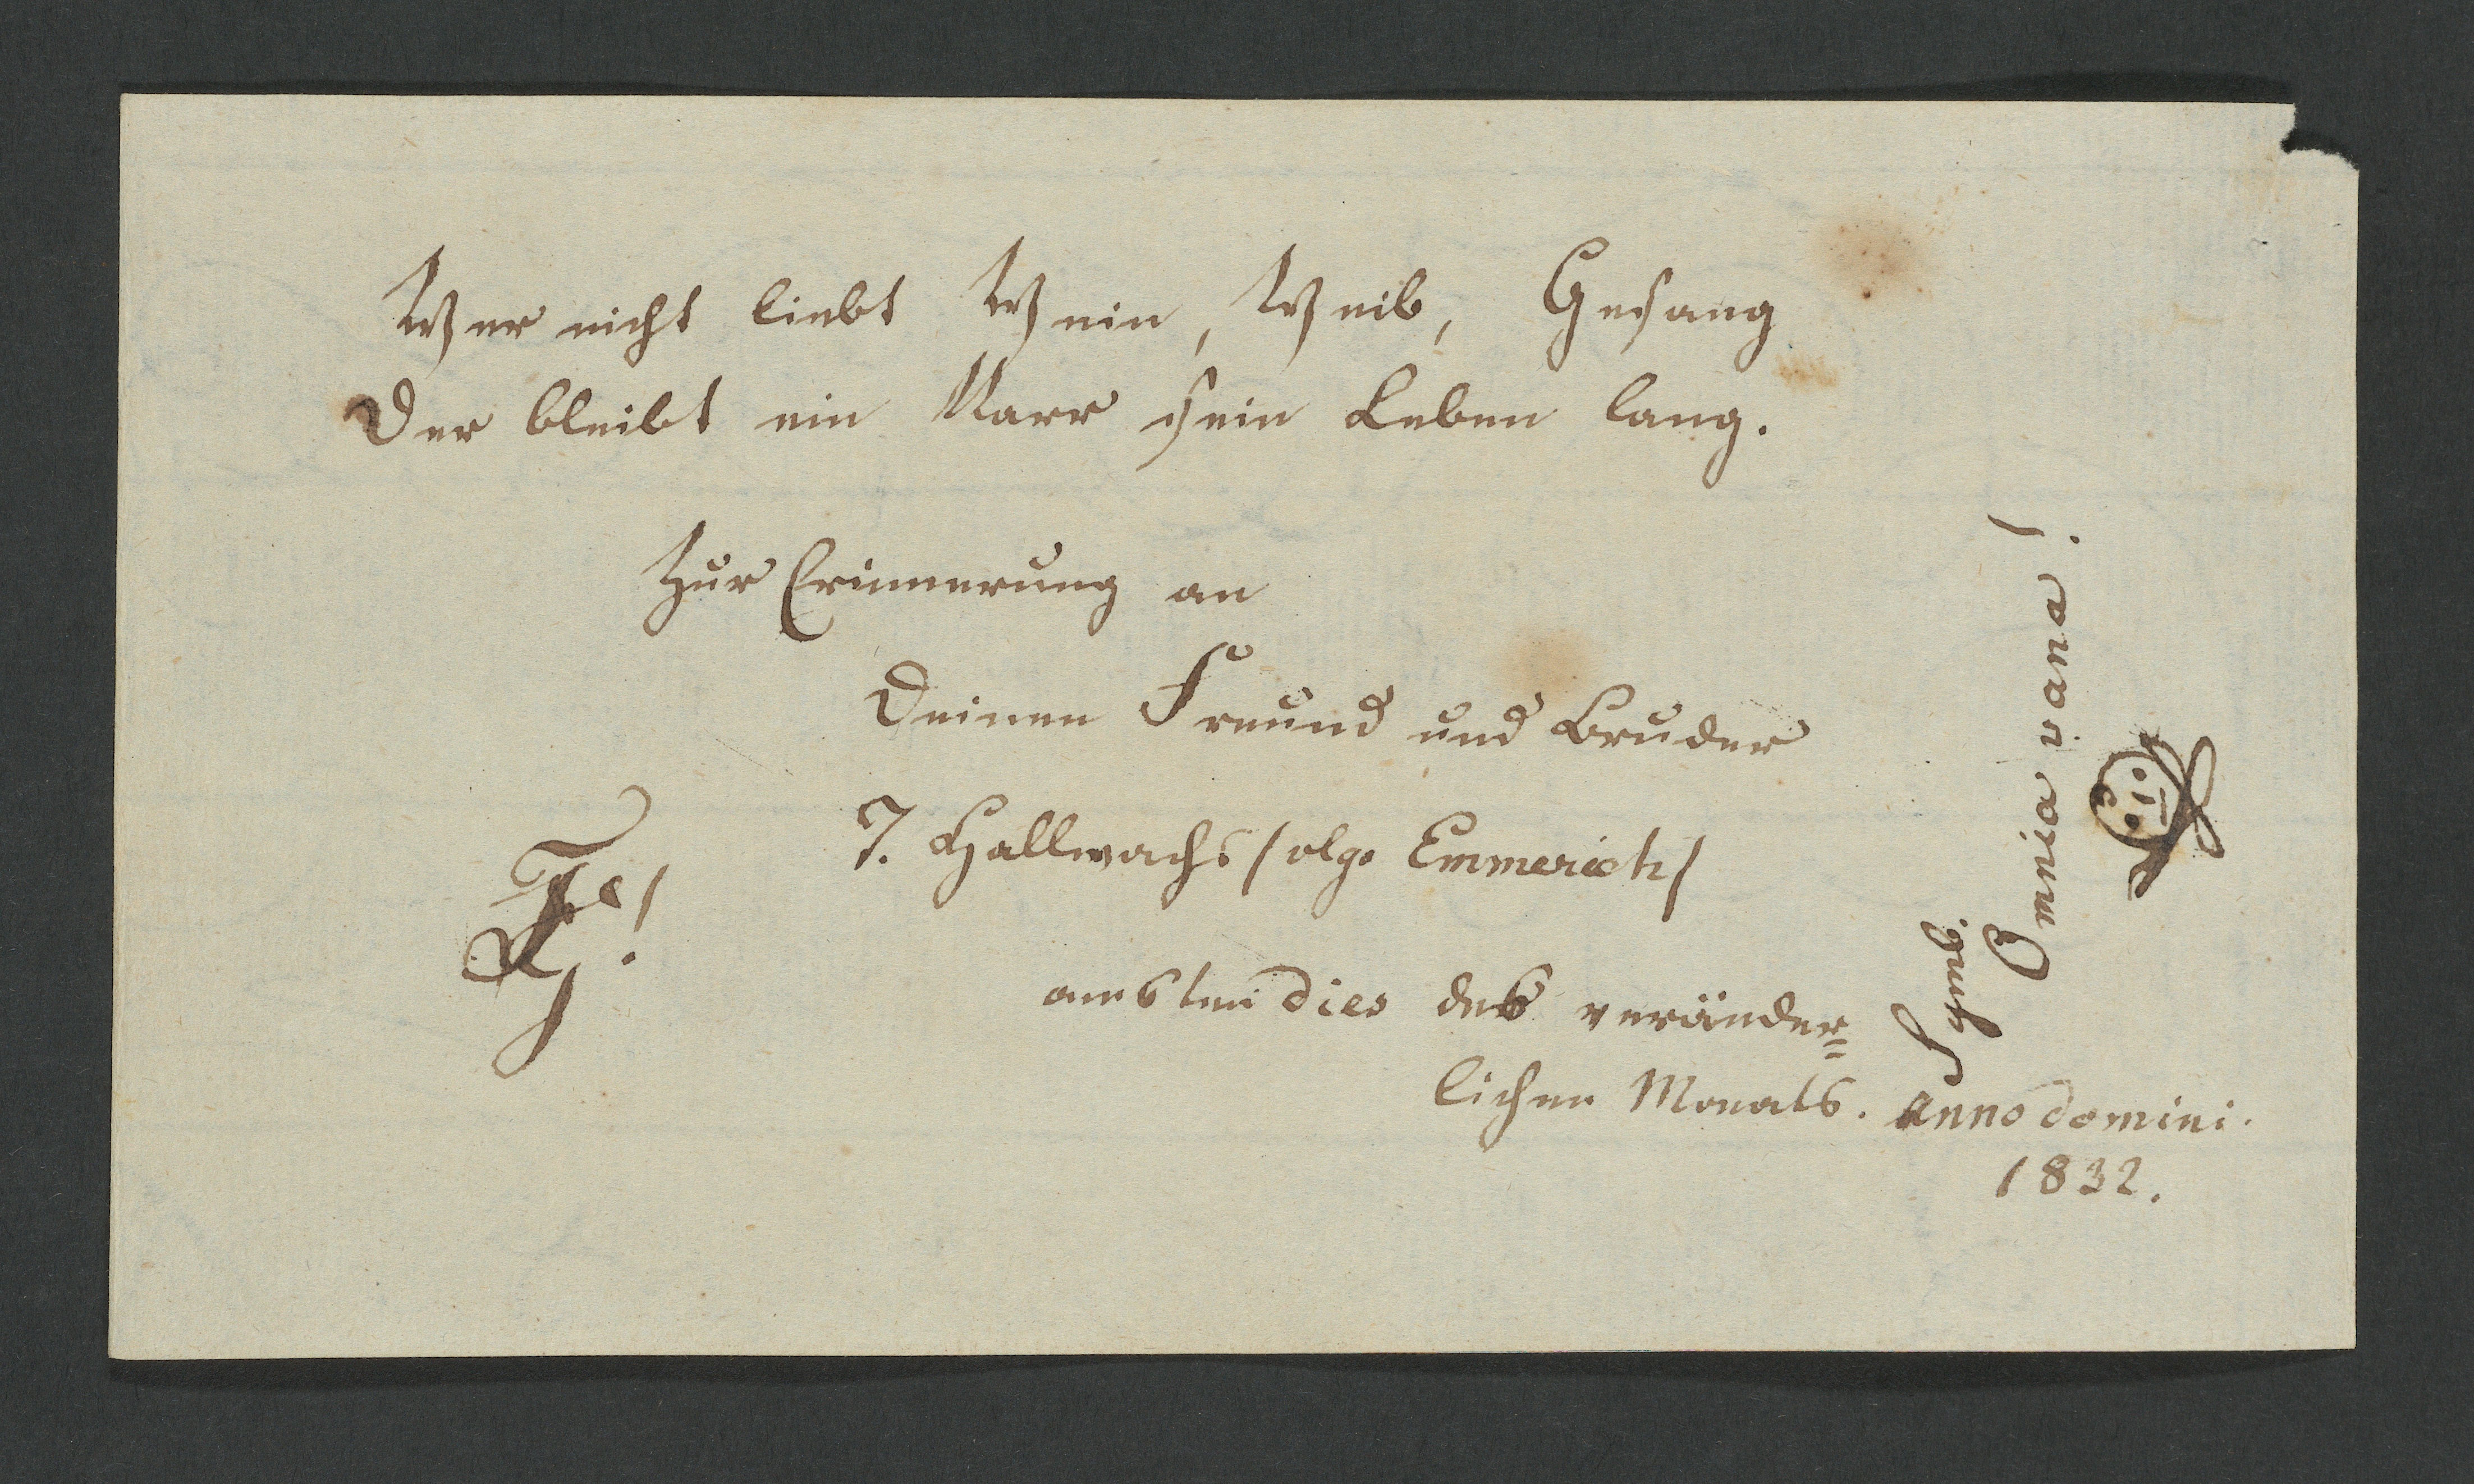 Wer nicht liebt Wein, Weib, Gesang
Der bleibt ein Narr sein Leben lang.
Zur Erinnerung an
Deinen Freund und Bruder
J. Hallwachs / vlgo Emmerich /
am 6ten dies des veränder=
lichen Monats. anno domini.
1832.
Symb.
Omnia vana!